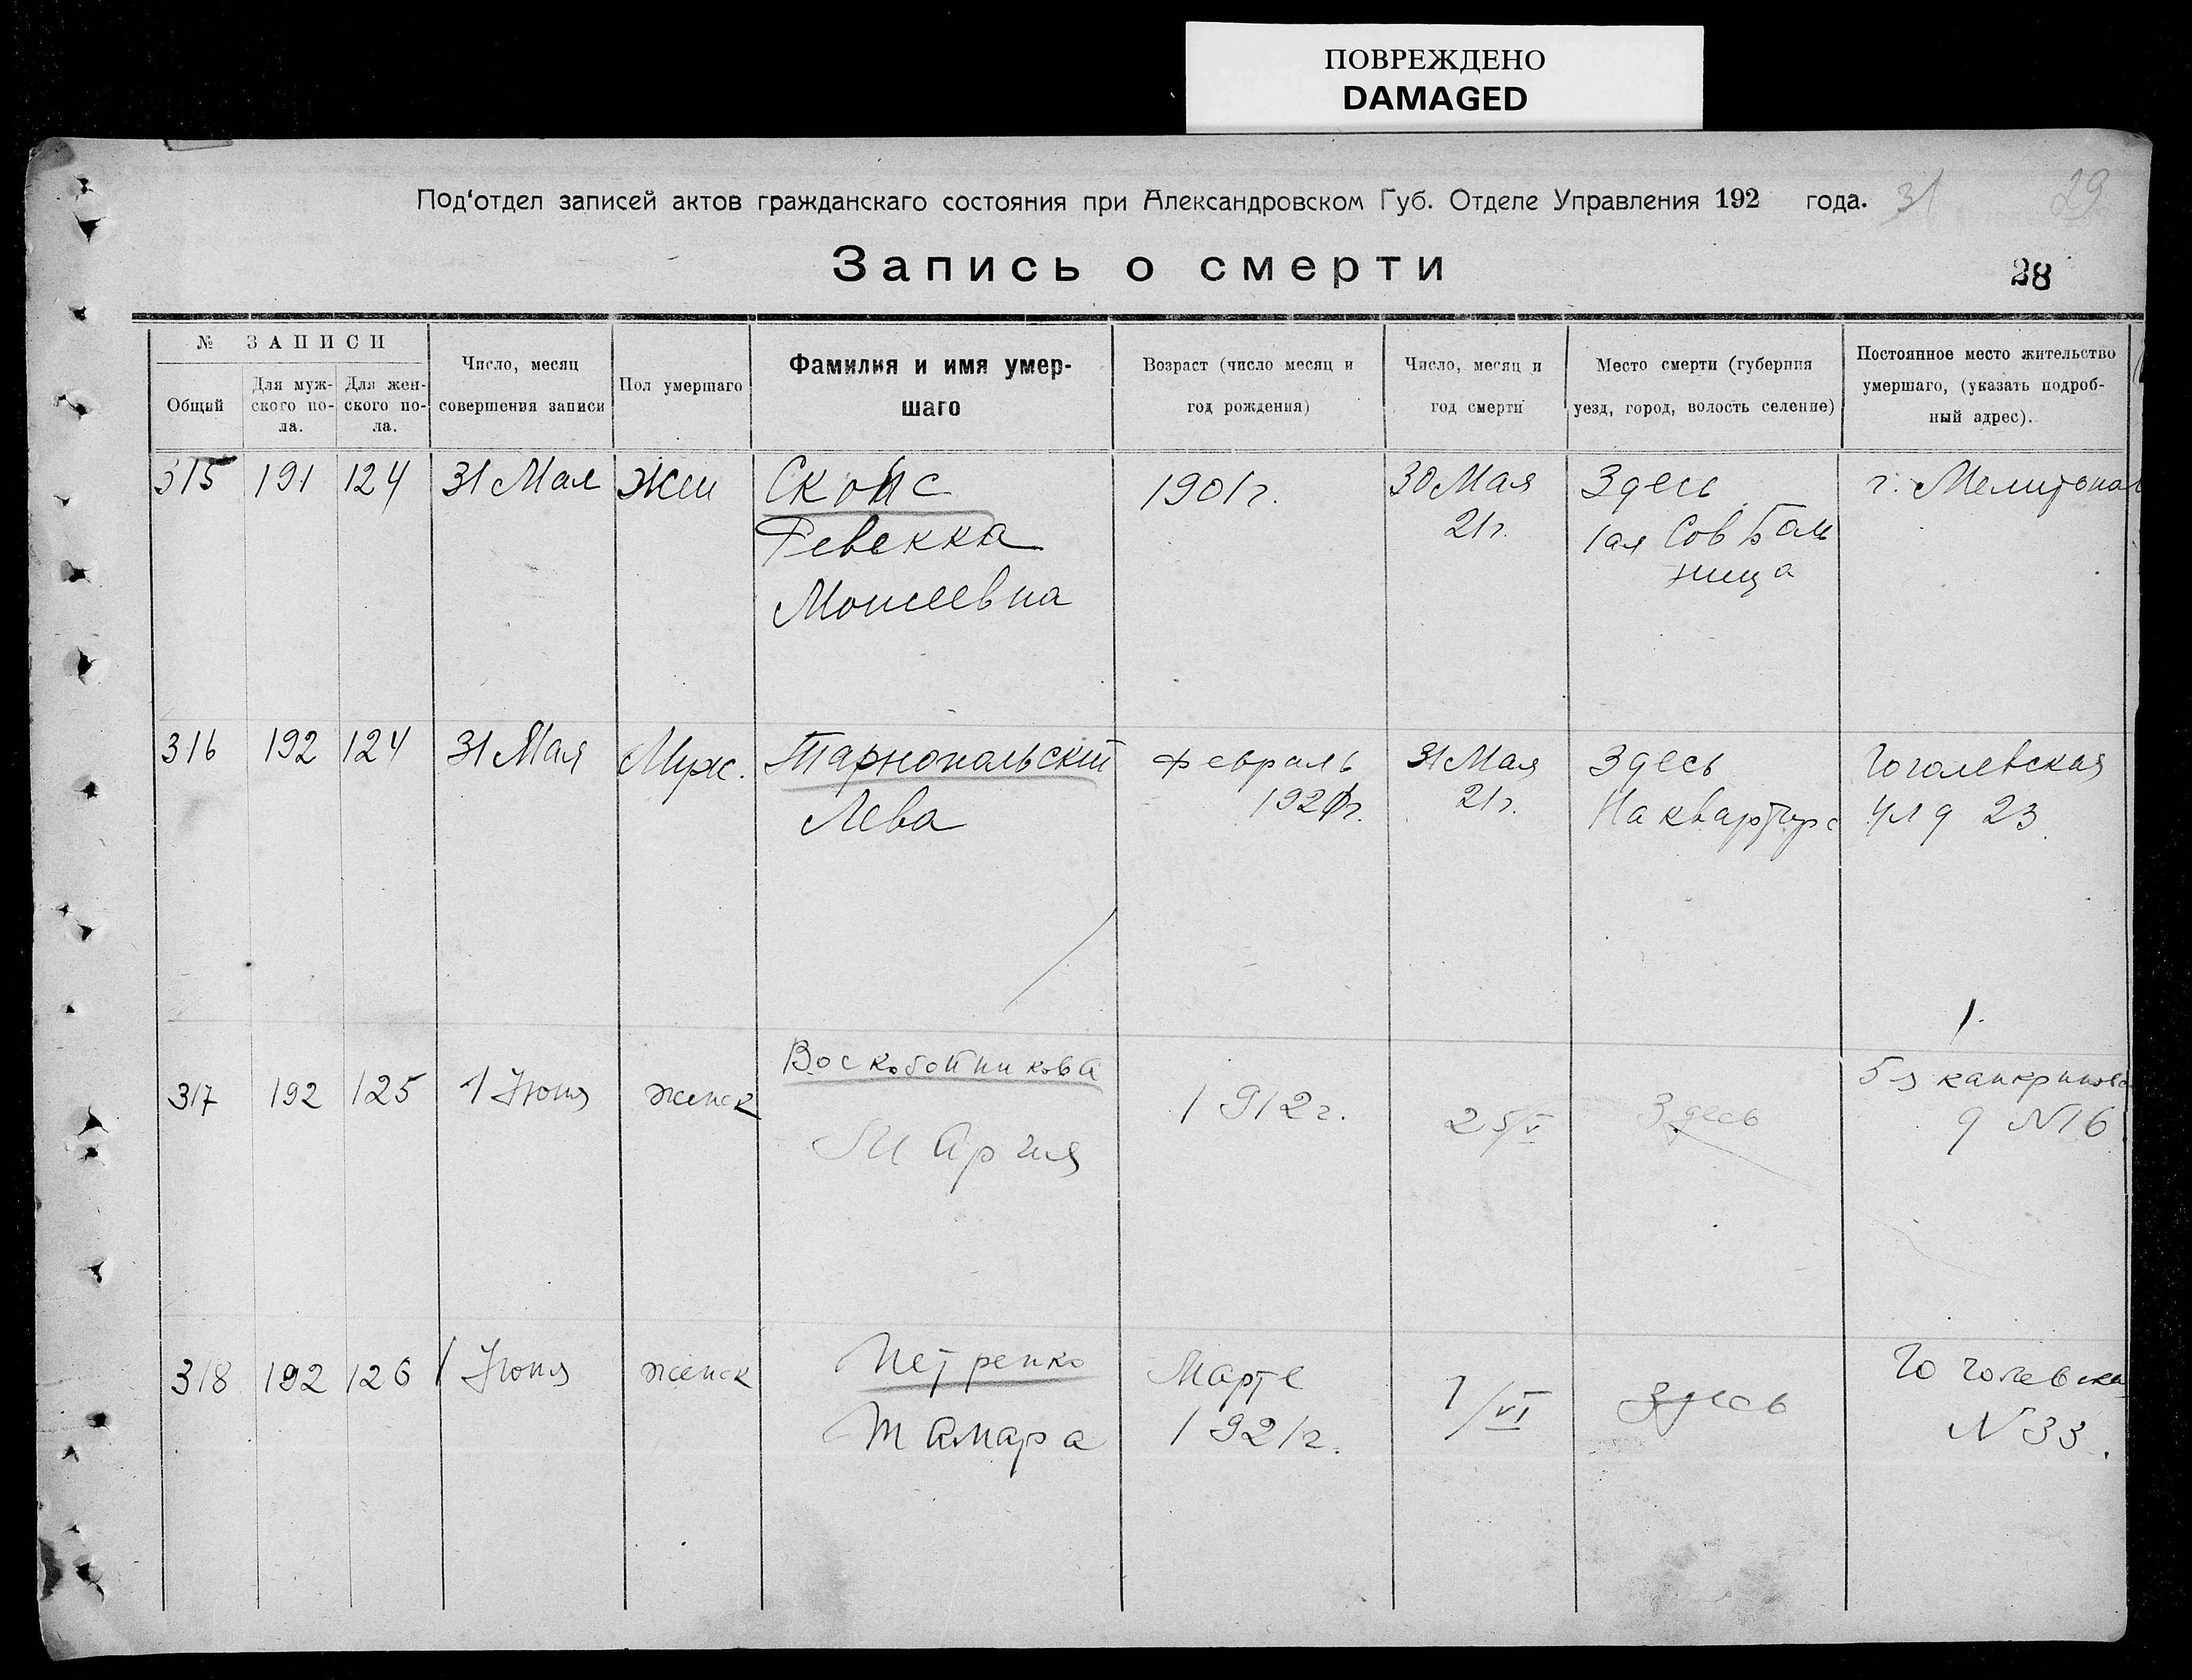 ПОВРЕЖДЕНО
DAMAGED
Под‘отдел записей актов гражданскаго состояния при Александровском Губ. Отделе Управления 192 года. 31 29
Запись о смерти
28
№ ЗАПИСИ
Общий
Для муж-
ского по-
ла.
Для жен-
ского по-
ла.
Число, месяц
совершения записи
Пол умершаго
Фамилия и имя умер-
шаго
Возраст (число месяц и
год рождения)
Число, месяц и
год смерти
Место смерти (губерния
уезд, город, волость селение)
Постоянное место жительство
умершаго, (указать подроб-
ный адрес).
315 191 124 31 Мая Жен
Ревекка
Моисеевна
1901 г.
30 Мая
21 г.
Здесь
1ая Сов Боль
ница
г. Мелитопол
316 192 124 31 Мая Муж.
Тарнопольский
Лева
Февраль
31 Мая
21 г.
Здесь
На квартире
Гоголевская
ул д 23
317 192 125 1 Июня женск
Воскобойникова
Мария
1912 г.
25/V
Здесь
д №16
318 192 126 1 Июня женск
Петренко
Тамара
Марте
1921 г.
1/VI
Здесь
Гоголевска
N 33.